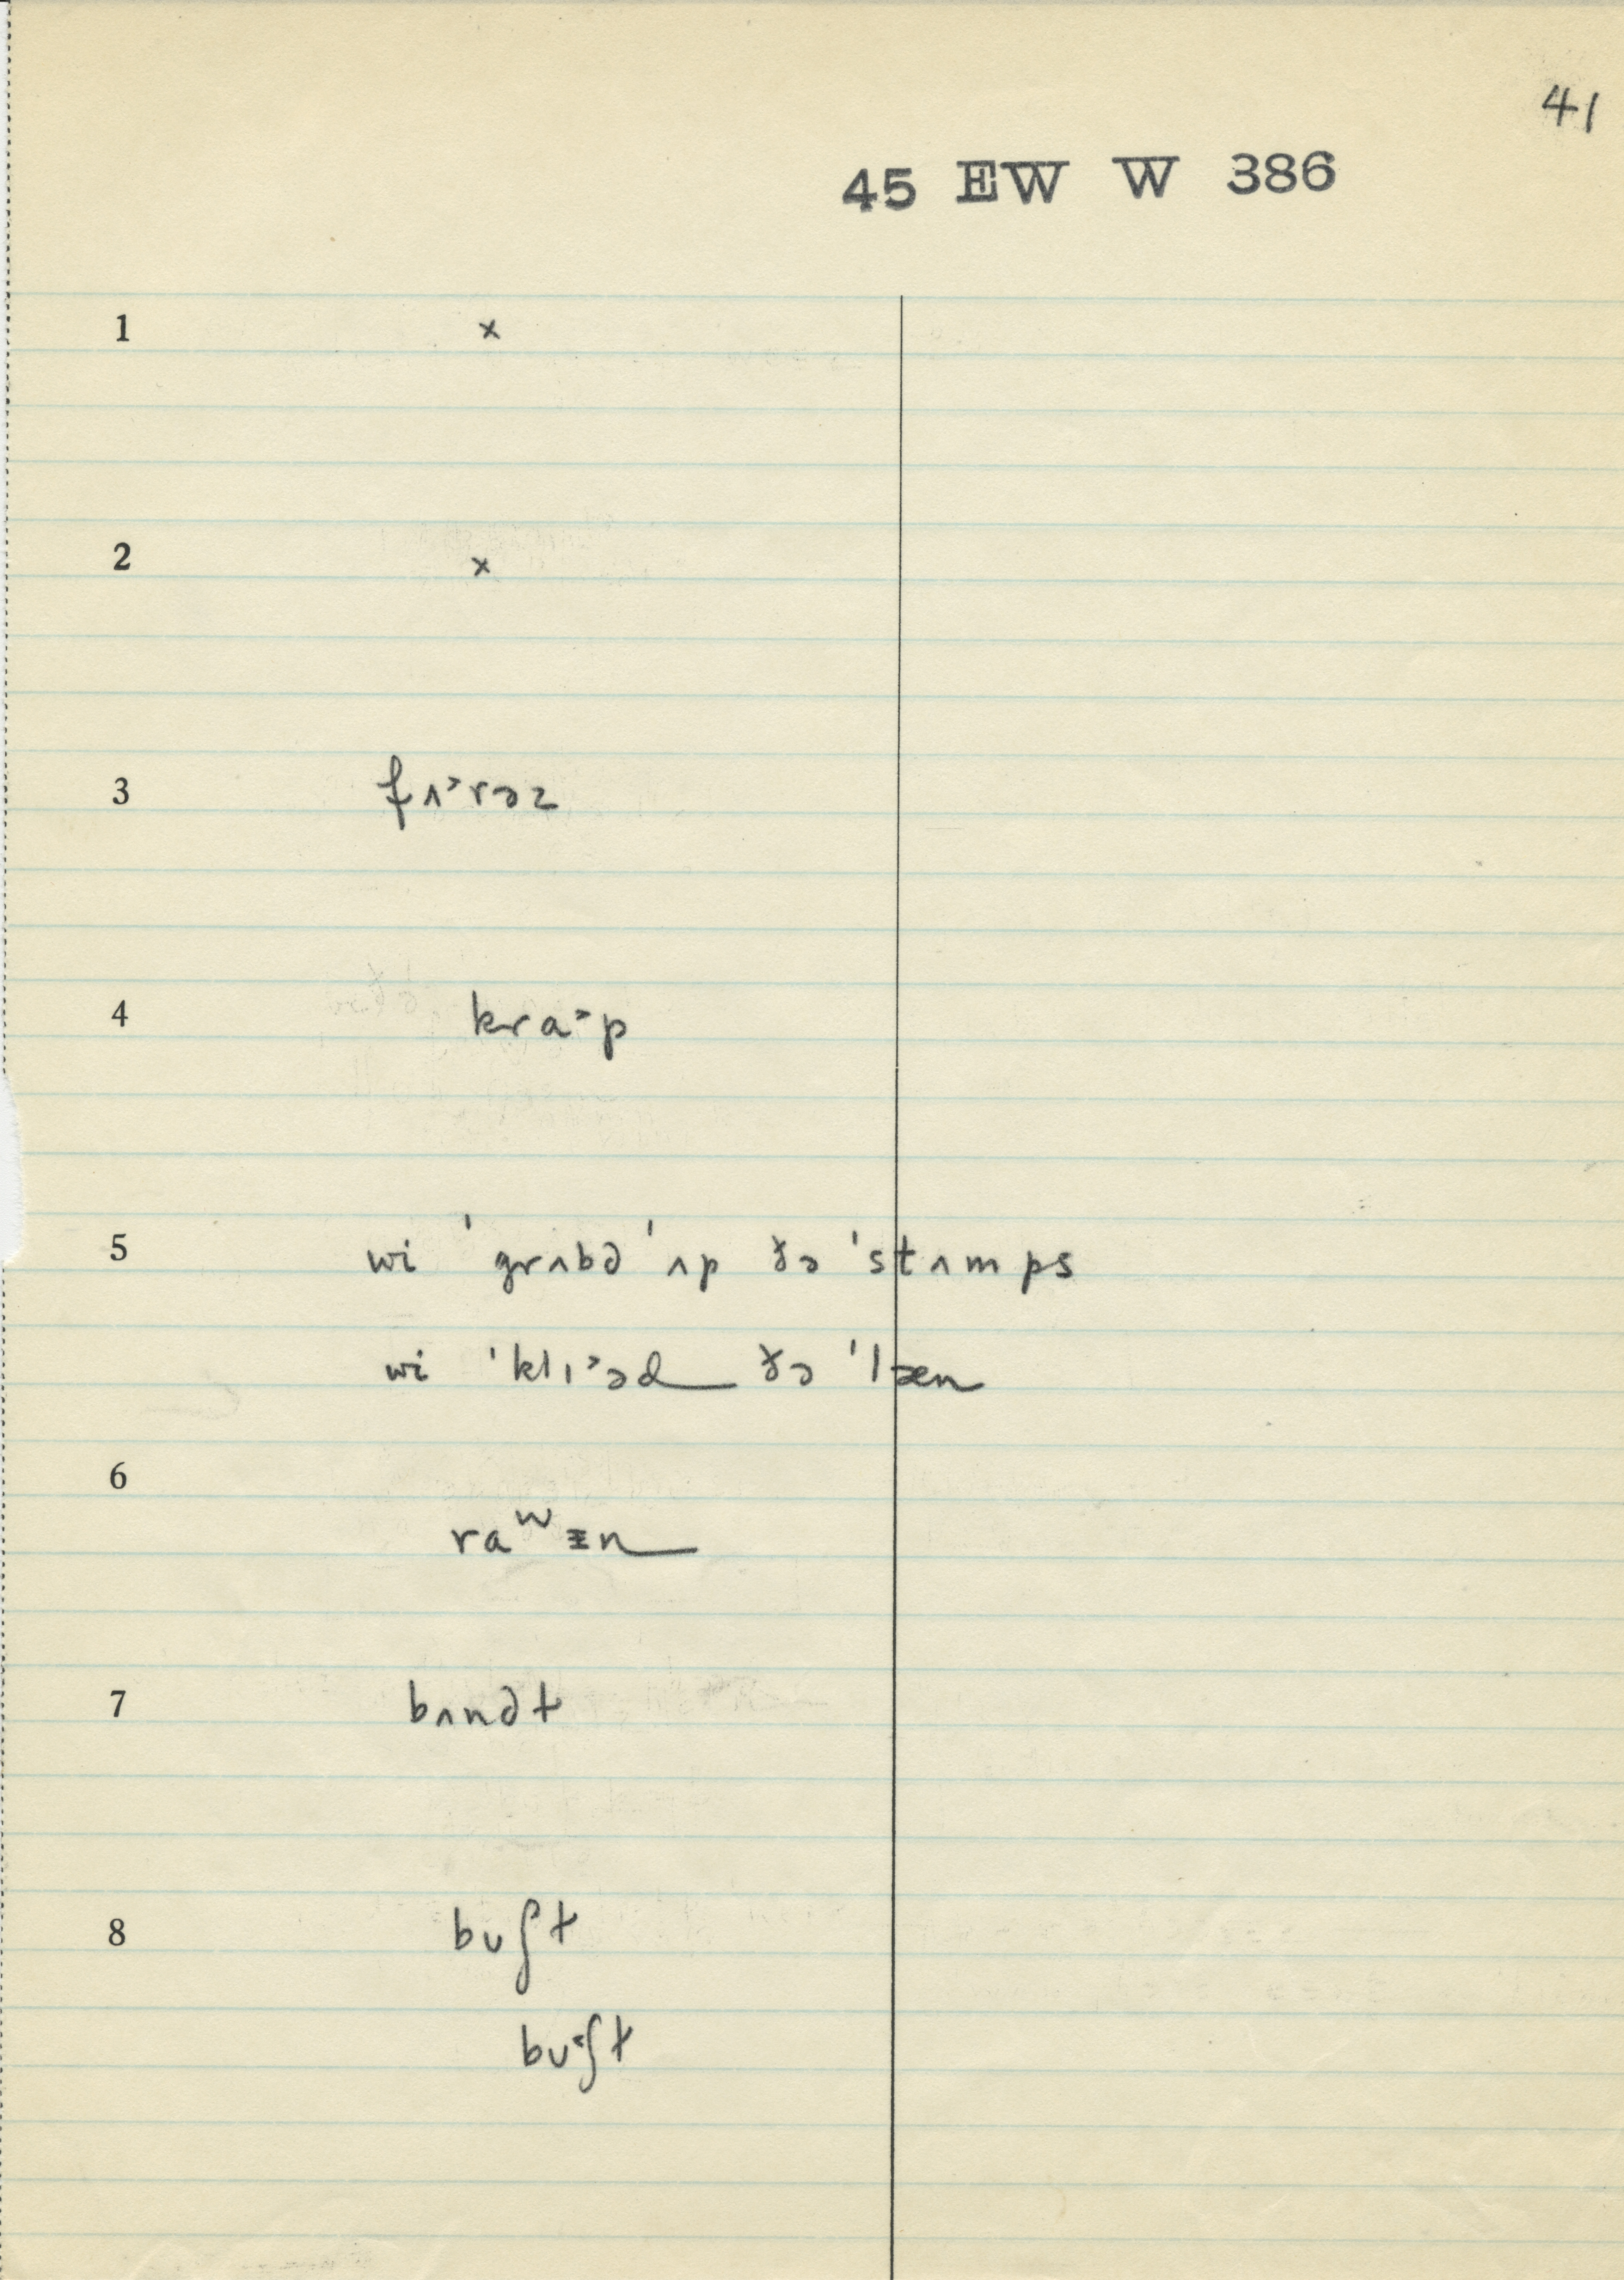 41
45 EW W 386
1 ×
2 ×
3 fʌ˃rəz
4 kra˃p
5 wi 'grʌbd 'ʌp ðə 'stʌmps
wi 'klɪ˃əd ðə 'læn
6
raʷᵻn
7 bʌndt
8 bʊʃt
bʊ˂ʃt